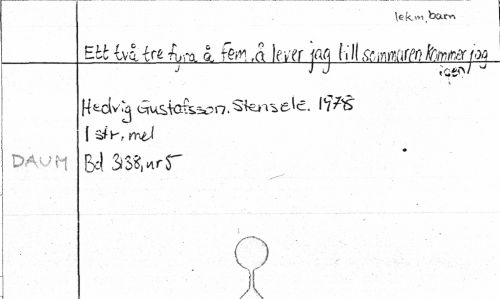 lekm, barn
Ett två tre fyra å fem, å lever jag till sommaren kommer jag
igen
Hedvig Gustafsson. Stensele. 1978
1 str, mel
DAUM Bd 3138, nr 5